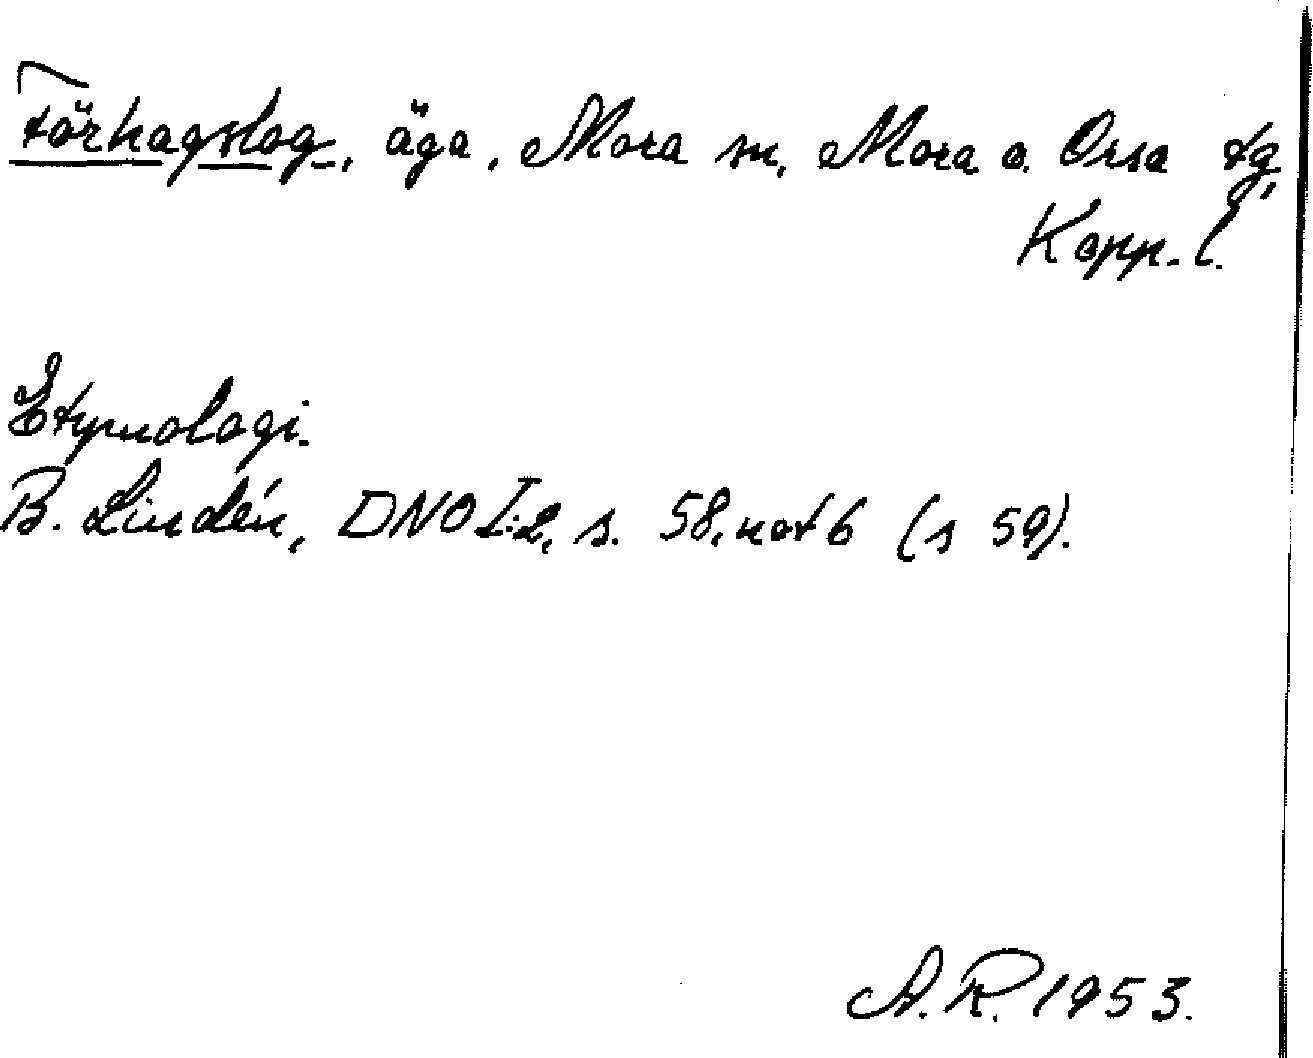 Förhagslog, äga, Mora sn, Mora o. Orsa tg,
Kopp. l.
Etymologi.
B. Lindén, DNO I:2, s. 58, not 6 (s 59).
A. R. 1953.